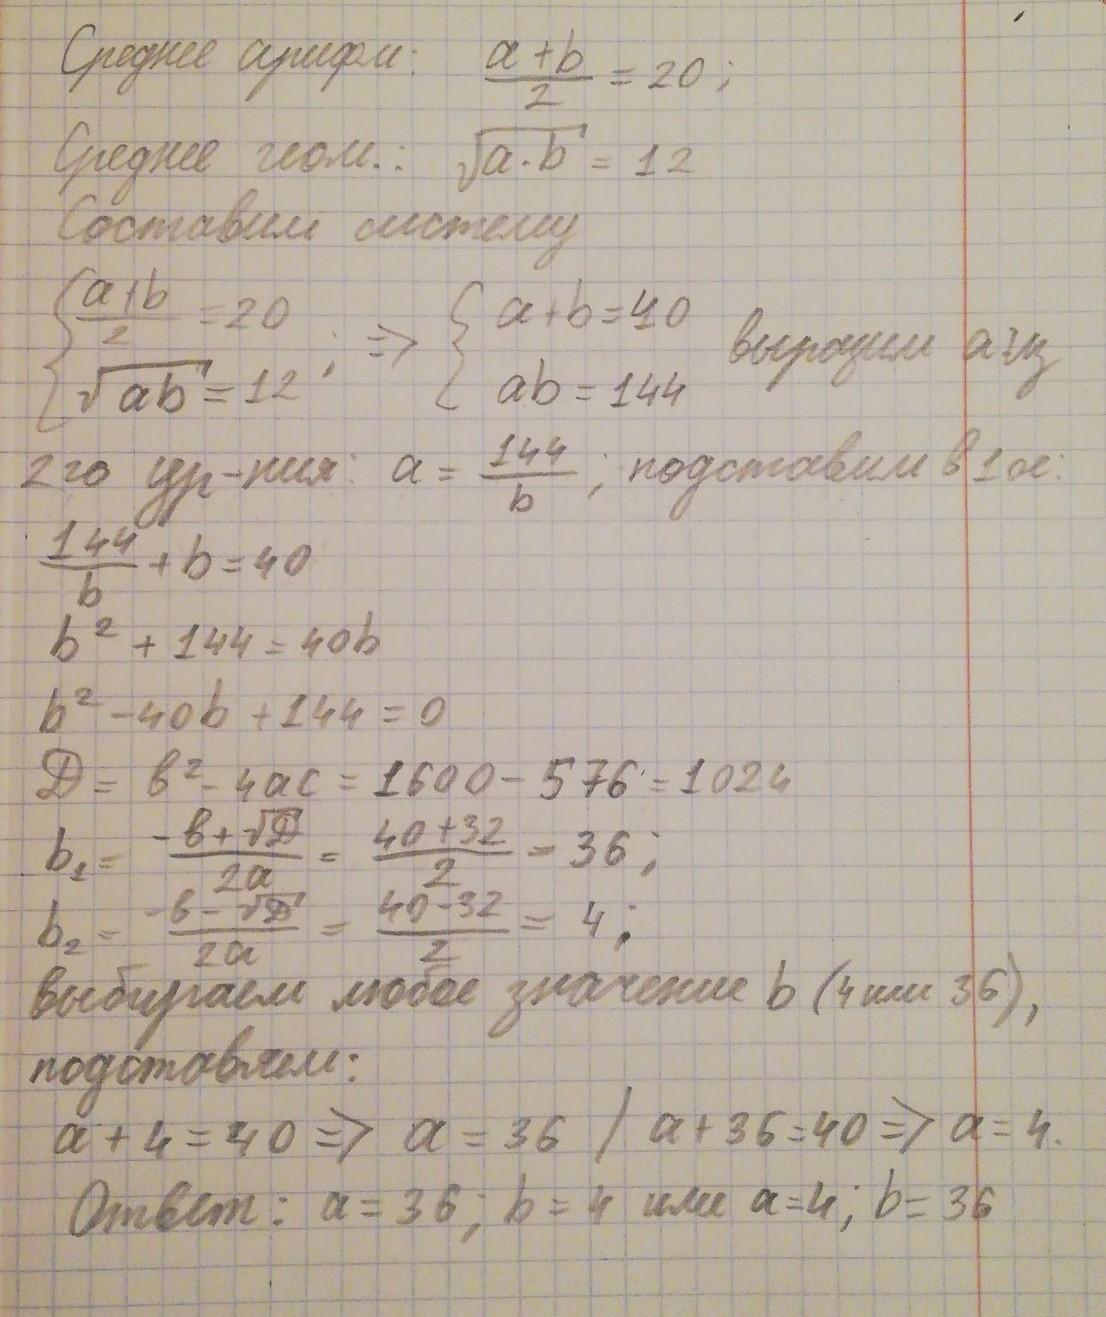 Среднее арифм: (a+b)/2 = 20;
Среднее геом.: √(a·b) = 12
Составим систему
{ (a+b)/2 = 20; √(ab) = 12 ; => { a+b=40; ab=144 выразим a из
2го ур-ния: a = 144/b ; подставим в 1ое:
144/b + b = 40
b² + 144 = 40b
b² - 40b + 144 = 0
D = в² - 4ac = 1600 - 576 = 1024
b₁ = (-в+√D)/2a = (40+32)/2 = 36;
b₂ = (-в-√D)/2a = (40-32)/2 = 4;
выбираем любое значение b (4 или 36),
подставляем:
a + 4 = 40 => a = 36 / a+36=40 => a=4.
Ответ: a = 36; b = 4 или a=4; b=36